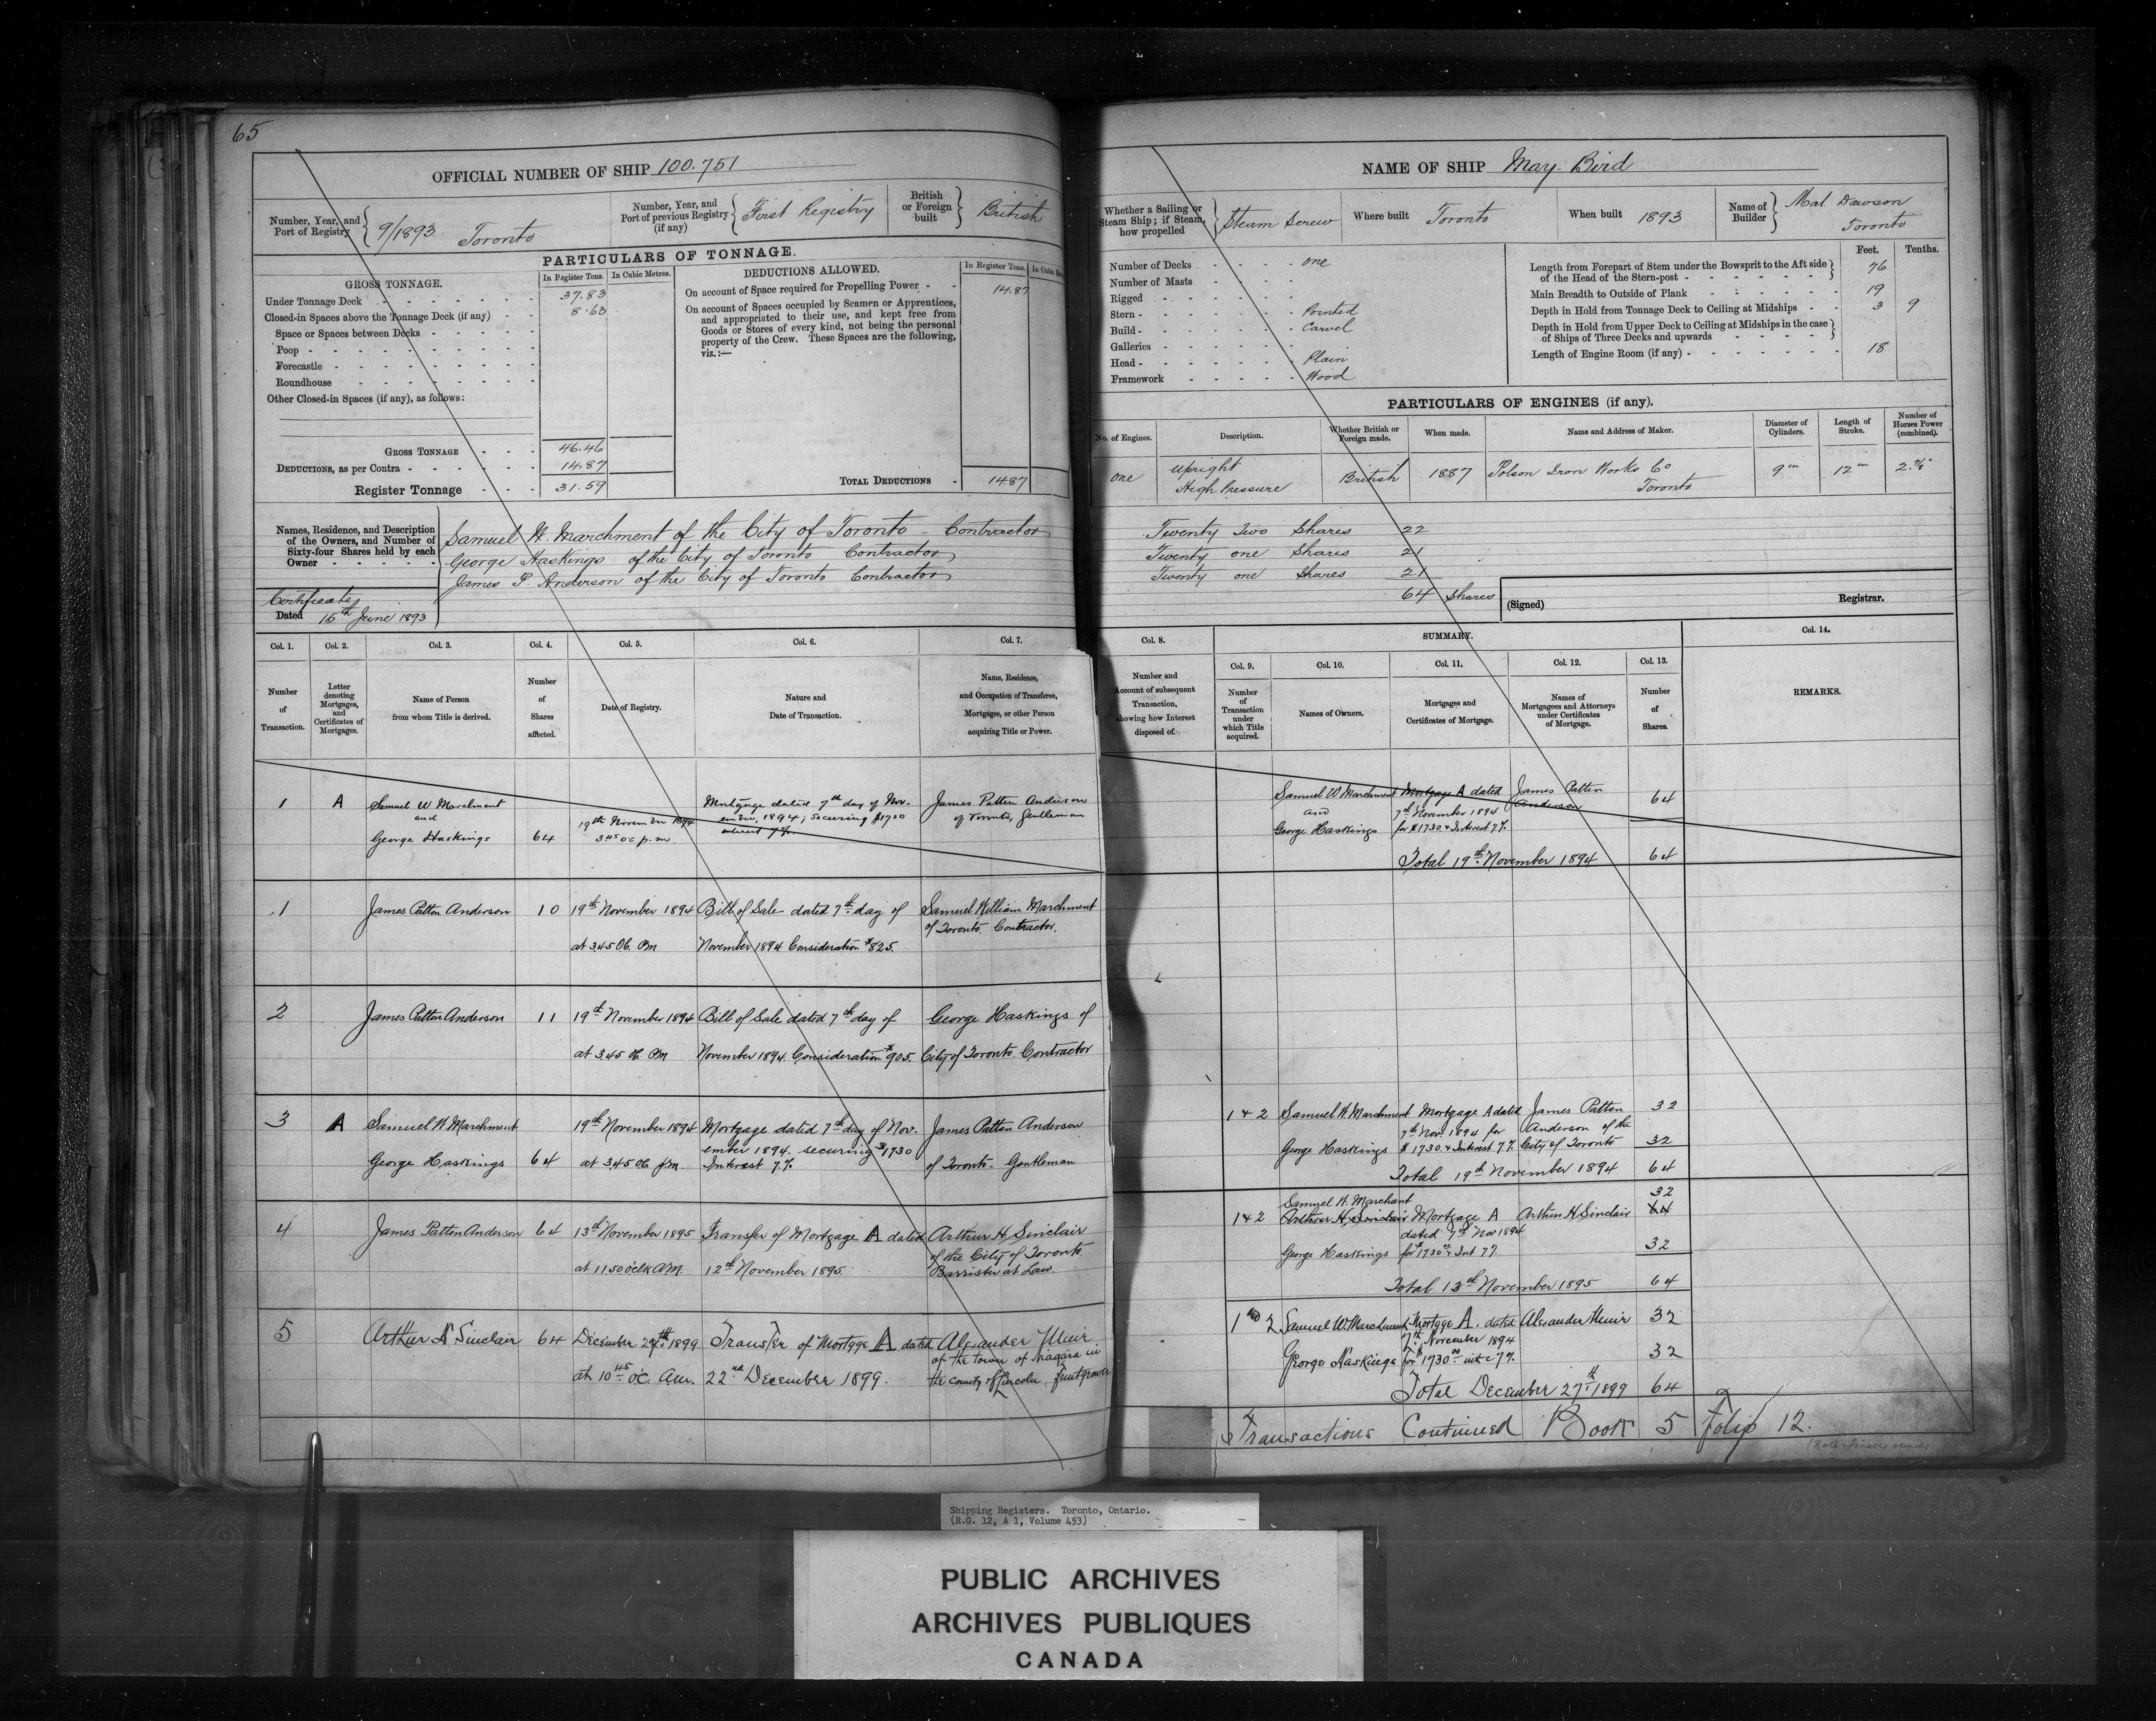 65
OFFICIAL NUMBER OF SHIP 100.751
Number, Year, and Port of Registry 9/1893 Toronto
Number, Year, and Port of previous Registry (if any) First Registry
British or Foreign built British
PARTICULARS OF TONNAGE.
GROSS TONNAGE.
In Register Tons. In Cubic Metres.
Under Tonnage Deck 37.83
Closed-in Spaces above the Tonnage Deck (if any) 8.63
Space or Spaces between Decks
Poop
Forecastle
Roundhouse
Other Closed-in Spaces (if any), as follows:
GROSS TONNAGE 46.46
DEDUCTIONS, as per Contra 14.87
Register Tonnage 31.59
DEDUCTIONS ALLOWED.
In Register Tons. In Cubic
On account of Space required for Propelling Power 14.87
On account of Spaces occupied by Seamen or Apprentices,
and appropriated to their use, and kept free from
Goods or Stores of every kind, not being the personal
property of the Crew. These Spaces are the following,
viz.:—
TOTAL DEDUCTIONS 14.87
Names, Residence, and Description
of the Owners, and Number of
Sixty-four Shares held by each
Owner
Samuel W. Marchment of the City of Toronto Contractor
George Haskings of the City of Toronto Contractor
James P. Anderson of the City of Toronto Contractor
Certificate
Dated 16th June 1893
Col. 1. Col. 2. Col. 3. Col. 4. Col. 5. Col. 6. Col. 7.
Number of Transaction.
Letter denoting Mortgages, and Certificates of Mortgages.
Name of Person from whom Title is derived.
Number of Shares affected.
Date of Registry.
Nature and Date of Transaction.
Name, Residence, and Occupation of Transferee, Mortgagee, or other Person acquiring Title or Power.
1 A Samuel W Marchment and George Haskings 64
19th November 1894 3.45 oc p.m.
Mortgage dated 7th day of November, 1894; securing $1730 interest 7%
James Patten Anderson of Toronto, Gentleman
1 James Patten Anderson 10
19th November 1894 at 3.45 Oc Pm
Bill of Sale dated 7th day of November 1894 Consideration $825.
Samuel William Marchment of Toronto. Contractor.
2 James Patten Anderson 11
19th November 1894 at 3.45 Oc Pm
Bill of Sale dated 7th day of November 1894. Consideration $905.
George Haskings of City of Toronto. Contractor
3 A Samuel W. Marchment George Haskings 64
19th November 1894 at 3.45 Oc pm
Mortgage dated 7th day of November 1894. securing $1730 Interest 7%
James Patten Anderson of Toronto. Gentleman
4 James Patten Anderson 64
13th November 1895 at 11.50 oclk AM
Transfer of Mortgage A dated 12th November 1895.
Arthur H. Sinclair of the City of Toronto. Barrister at Law.
5 Arthur H Sinclair 64
December 27th 1899 at 10 45 oc. Am.
Transfer of Mortgge A dated 22nd December 1899.
Alexander Muir of the town of Niagara in the County of Lincoln fruitgrower
NAME OF SHIP May Bird
Whether a Sailing or Steam Ship; if Steam, how propelled Steam Screw
Where built Toronto
When built 1893
Name of Builder Mal. Dawson Toronto
Number of Decks one
Number of Masts
Rigged
Stern Pointed
Build Carvel
Galleries
Head Plain
Framework Wood
Feet. Tenths.
Length from Forepart of Stem under the Bowsprit to the Aft side
of the Head of the Stern-post 76
Main Breadth to Outside of Plank 19
Depth in Hold from Tonnage Deck to Ceiling at Midships 3 9
Depth in Hold from Upper Deck to Ceiling at Midships in the case
of Ships of Three Decks and upwards
Length of Engine Room (if any) 18
PARTICULARS OF ENGINES (if any).
No. of Engines. Description. Whether British or Foreign made. When made. Name and Address of Maker. Diameter of Cylinders. Length of Stroke. Number of Horses Power (combined).
one Upright High Pressure British 1887 Polson Iron Works Co Toronto 9 in 12 in
Twenty Two Shares 22
Twenty one Shares 21
Twenty one Shares 21
64 Shares
(Signed) Registrar.
Col. 8. SUMMARY. Col. 14.
Col. 9. Col. 10. Col. 11. Col. 12. Col. 13.
Number and Account of subsequent Transaction, showing how Interest disposed of.
Number of Transaction under which Title acquired.
Names of Owners.
Mortgages and Certificates of Mortgage.
Names of Mortgagees and Attorneys under Certificates of Mortgage.
Number of Shares.
REMARKS.
Samuel W Marchment and George Haskings
Mortgage A dated 7th November 1894 for $1730 & Interest 7%
James Patten Anderson 64
Total 19th November 1894 64
1 & 2 Samuel W. Marchment Mortgage A dated James Patten 32
7th Nov. 1894 for Anderson of the
George Haskings $1730 & Interest 7% City of Toronto 32
Total 19th November 1894 64
Samuel W. Marchant 32
1 & 2 Arthur H. Sinclair Mortgage A Arthur H Sinclair 64
dated 7th Nov 1894
George Haskings for $1730 & Int 7% 32
Total 13th November 1895 64
1 and 2 Samuel W. Marchment Mortgge A. dated Alexander Muir 32
7th November 1894
George Haskings for $1730 int @ 7% 32
Total December 27th 1899 64
Transactions Continued Book 5 Folio 12.
Shipping Registers. Toronto, Ontario.
(R.G. 12, A 1, Volume 453)
PUBLIC ARCHIVES
ARCHIVES PUBLIQUES
CANADA